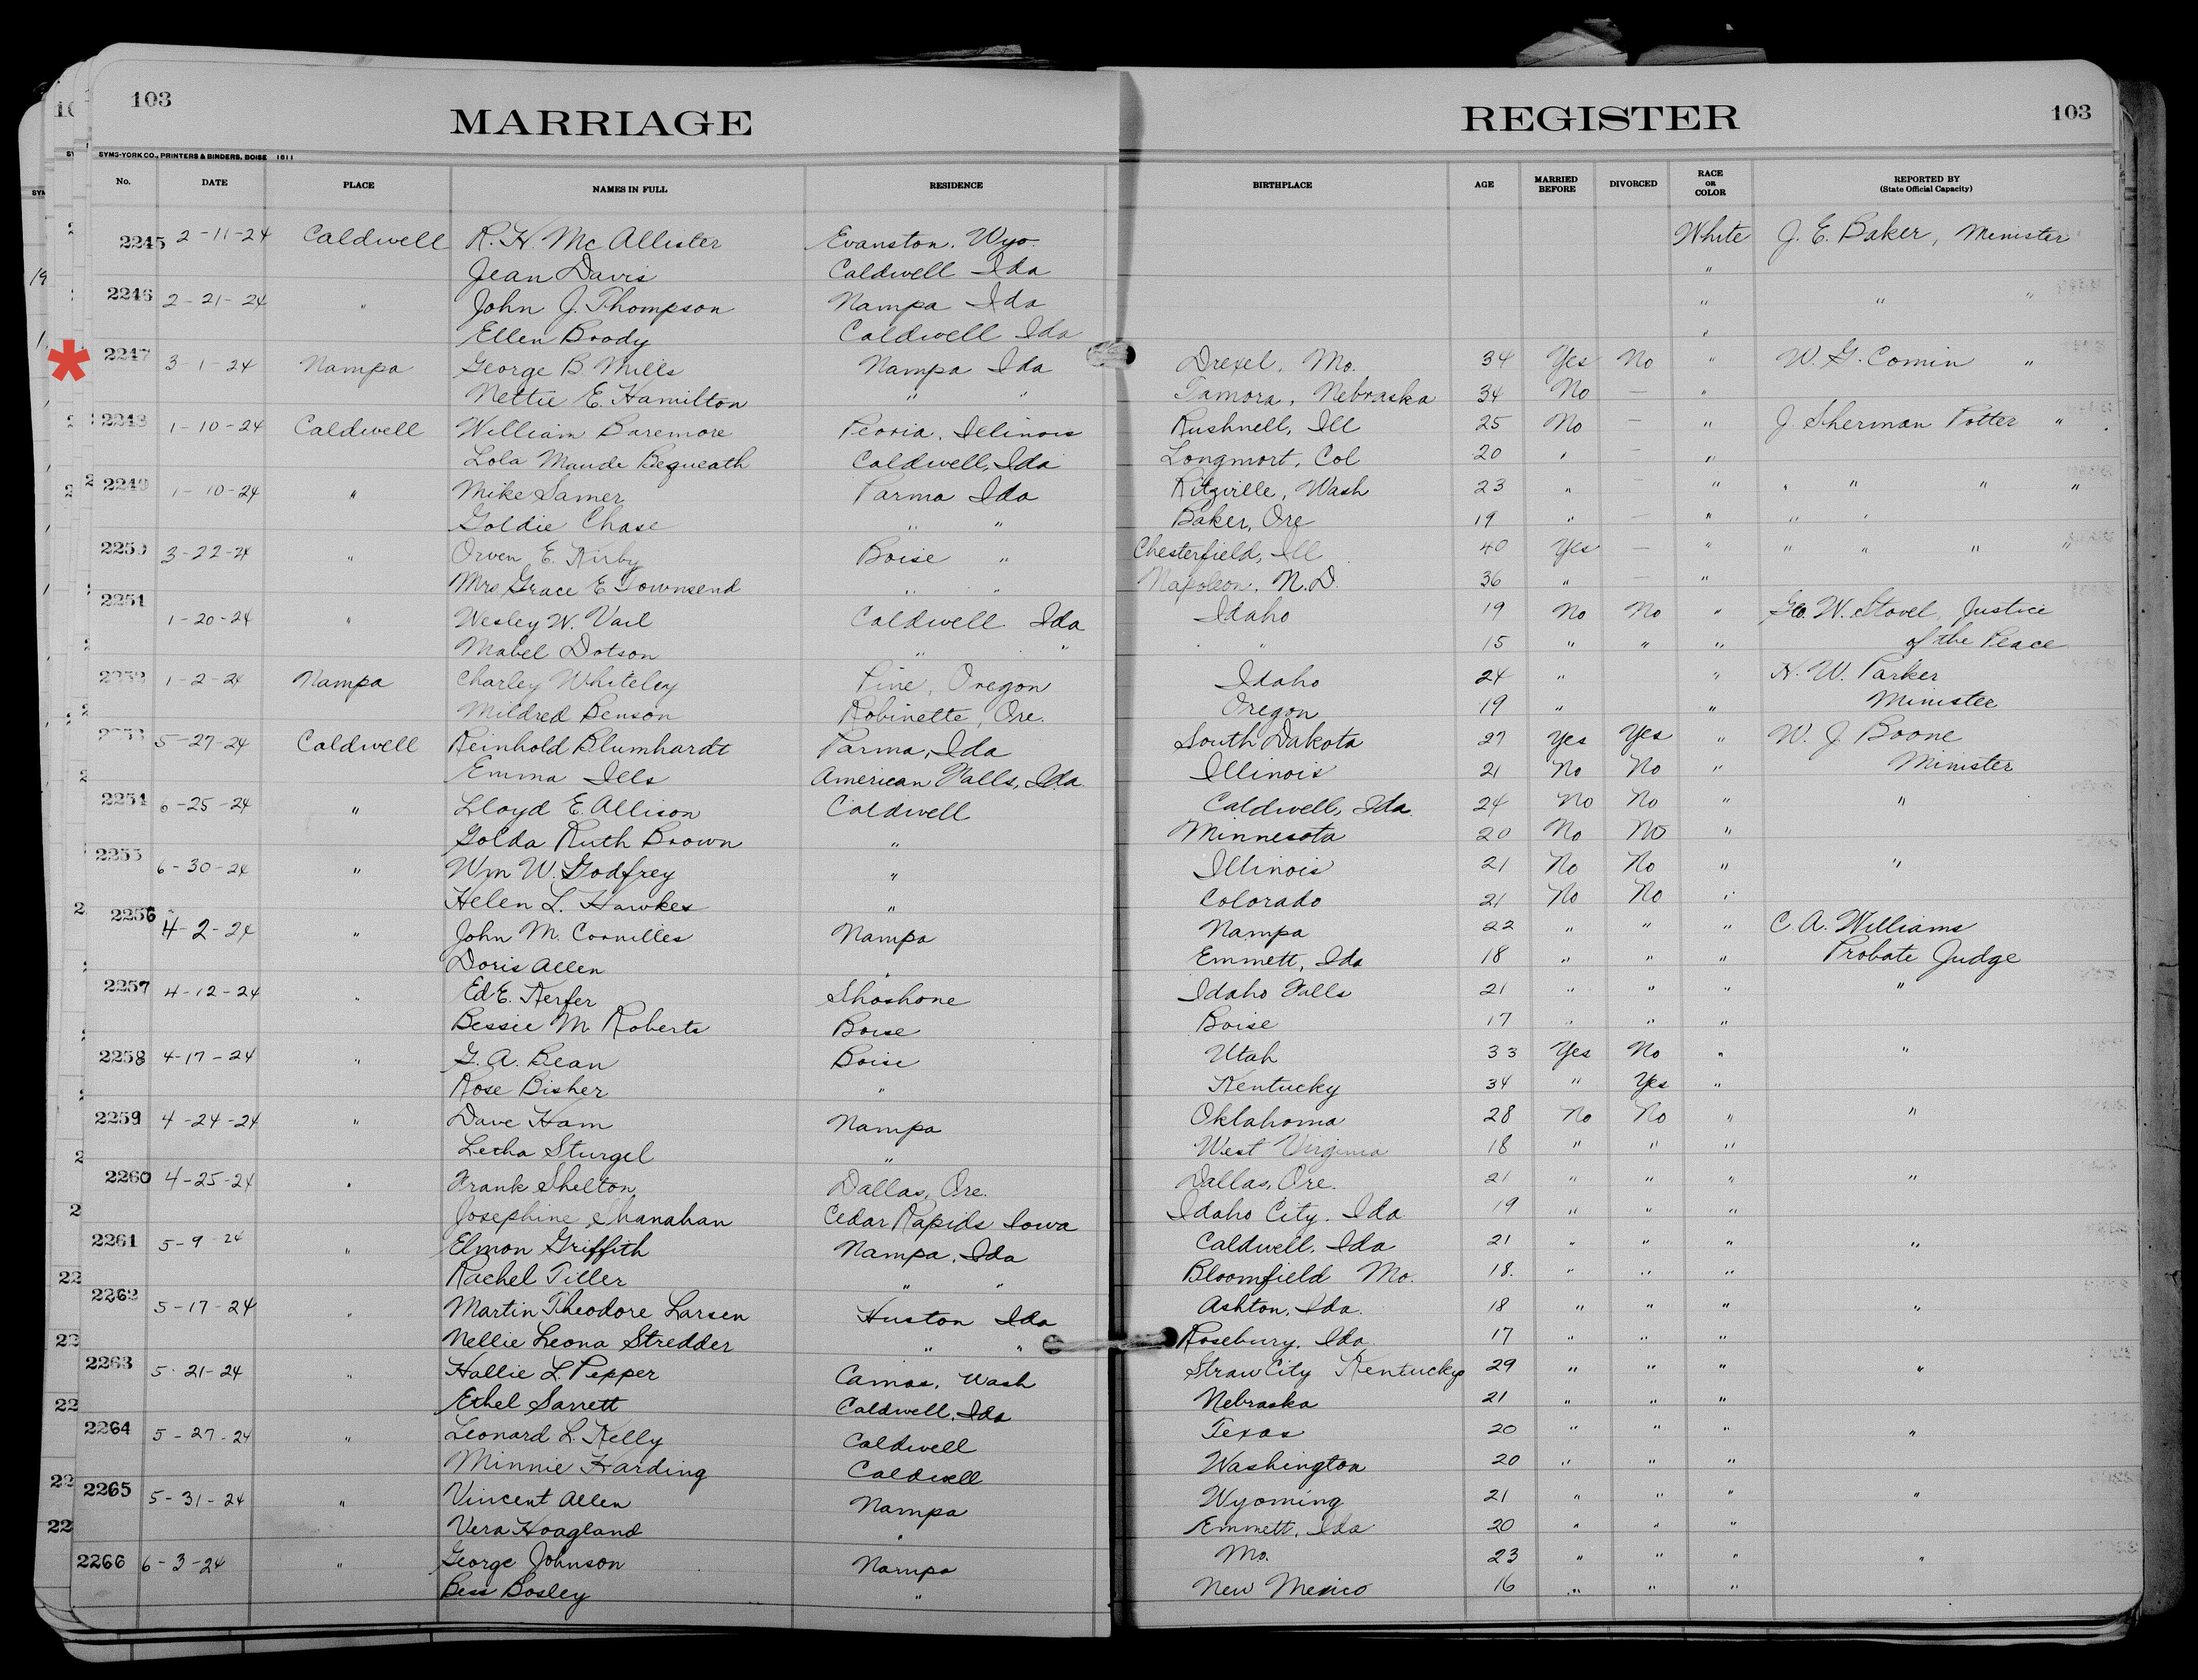 103 MARRIAGE REGISTER 103
SYMS-YORK CO., PRINTERS & BINDERS, BOISE 1611
No. DATE PLACE NAMES IN FULL RESIDENCE BIRTHPLACE AGE MARRIED BEFORE DIVORCED RACE OR COLOR REPORTED BY (State Official Capacity)
2245 2-11-24 Caldwell R. H. Mc Allister Evanston, Wyo. White J. E. Baker, Minister
Jean Davis Caldwell Ida "
2246 2-21-24 " John J. Thompson Nampa Ida " " "
Ellen Brody Caldwell Ida "
2247 3-1-24 Nampa George B. Mills Nampa Ida Drexel, Mo. 34 Yes No " W. G. Comin "
Nettie E. Hamilton " " Tamora, Nebraska 34 No — "
2248 1-10-24 Caldwell William Baremore Peoria, Illinois Rushnell, Ill 25 No — " J. Sherman Potter "
Lola Maude Bequeath Caldwell, Ida Longmort, Col 20 " — "
2249 1-10-24 " Mike Samer Parma Ida Ritzville, Wash 23 " — " " " " "
Goldie Chase " " Baker, Ore 19 " — " " "
2250 3-22-24 " Orven E. Kirby Boise " Chesterfield, Ill 40 Yes — " " " " "
Mrs Grace E Townsend " " Napoleon, N.D. 36 " "
2251 1-20-24 " Wesley W. Vail Caldwell Ida Idaho 19 No No " Geo. W. Stovel, Justice
Mabel Dotson " " " 15 " " " of the Peace
2252 1-2-24 Nampa Charley Whiteley Pine, Oregon Idaho 24 " " H. W. Parker
Mildred Benson Robinette, Ore. Oregon 19 " " Minister
2253 5-27-24 Caldwell Reinhold Blumhardt Parma, Ida South Dakota 27 Yes Yes " W. J. Boone
Emma Ills American Falls, Ida. Illinois 21 No No " Minister
2254 6-25-24 " Lloyd E. Allison Caldwell Caldwell, Ida. 24 No No " "
Golda Ruth Brown " Minnesota 20 No No "
2255 6-30-24 " Wm W. Godfrey " Illinois 21 No No " "
Helen L. Hawkes " Colorado 21 No No "
2256 4-2-24 " John M. Cornilles Nampa Nampa 22 " " " C. A. Williams
Doris Allen " Emmett, Ida 18 " " " Probate Judge
2257 4-12-24 " Ed E. Kerfer Shoshone Idaho Falls 21 " " " "
Bessie M. Roberts Boise Boise 17 " " "
2258 4-17-24 " G. A. Bean Boise Utah 33 Yes No " "
Rose Bisher " Kentucky 34 " Yes "
2259 4-24-24 " Dave Ham Nampa Oklahoma 28 No No " "
Letha Sturgel " West Virginia 18 " " "
2260 4-25-24 " Frank Shelton Dallas, Ore. Dallas, Ore. 21 " " " "
Josephine Shanahan Cedar Rapids Iowa Idaho City, Ida 19 " " "
2261 5-9-24 " Elmon Griffith Nampa, Ida Caldwell, Ida 21 " " " "
Rachel Tiller " " Bloomfield Mo. 18. " " "
2262 5-17-24 " Martin Theodore Larsen Huston Ida Ashton, Ida. 18 " " " "
Nellie Leona Stredder " " Rosebury, Ida 17 " " "
2263 5-21-24 " Hallie L. Pepper Camas, Wash Straw City Kentucky 29 " " " "
Ethel Sarrett Caldwell, Ida Nebraska 21 " " "
2264 5-27-24 " Leonard L. Kelly Caldwell Texas 20 " " " "
Minnie Harding Caldwell Washington 20 " " "
2265 5-31-24 " Vincent Allen Nampa Wyoming 21 " " " "
Vera Hoagland " Emmett, Ida 20 " " "
2266 6-3-24 " George Johnson Nampa Mo. 23 " " " "
Bess Bosley " New Mexico 16 " " "